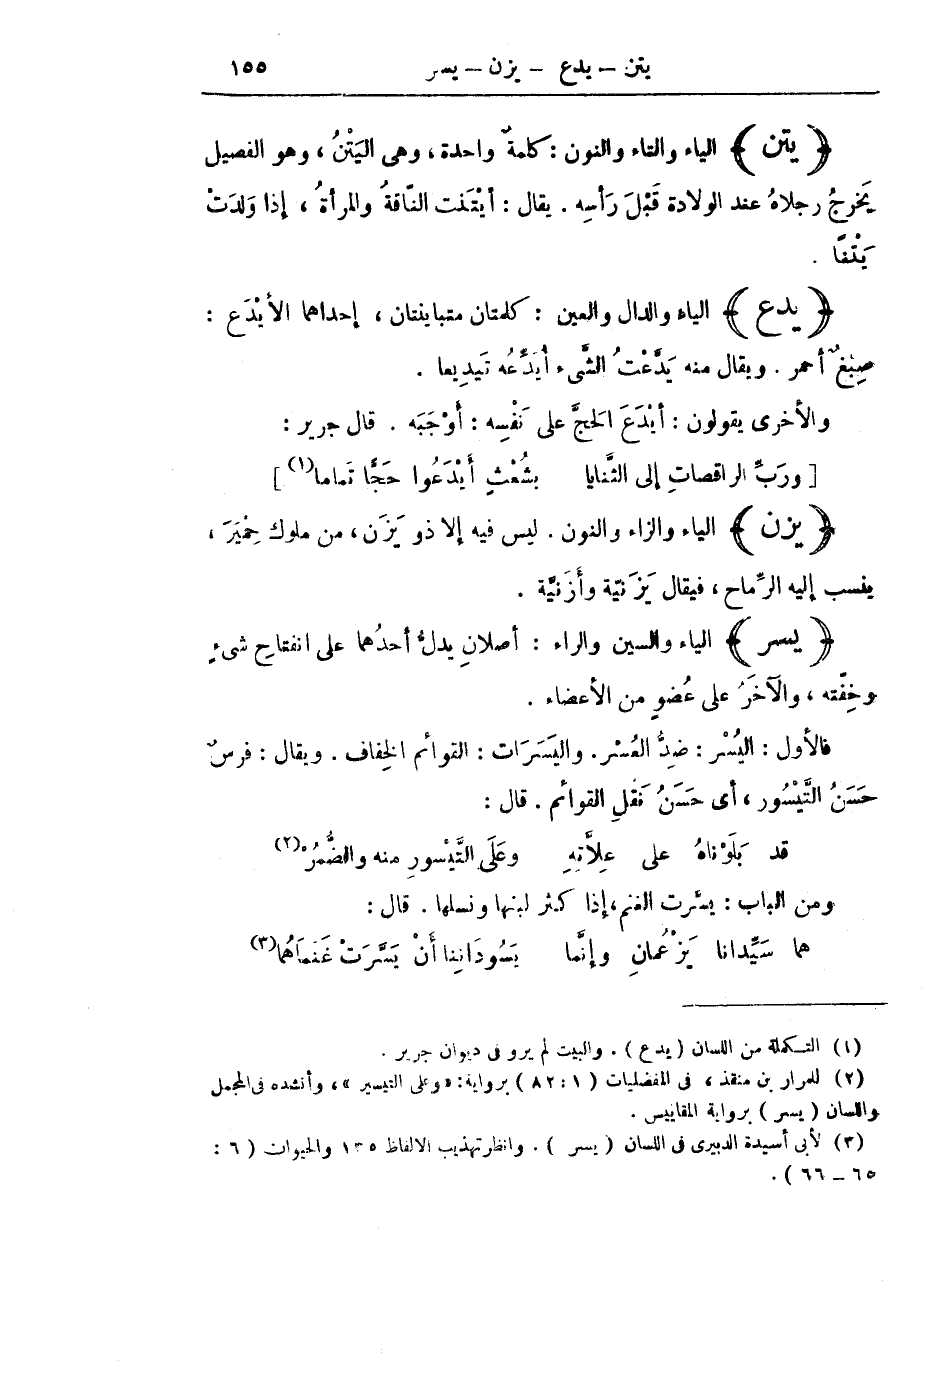 يتن – يدع – يزن – يسر ١٥٥
﴿ يتن ﴾ الياء والتاء والنون : كلمةٌ واحدة ، وهى اليَتْنُ ، وهو الفصيل
يَخرجُ رجلاهُ عند الولادة قَبْلَ رأسِه . يقال : أيْتَنَت النّاقةُ والمرأةُ ، إذا وَلدَتْ
يَتْنًا .
﴿ يدع ﴾ الياء والدال والعين : كلمتان متباينتان ، إحداهما الأيْدَع :
صِبْغٌ أحمر . ويقال منه يَدَّعْتُ الشَّىء أيَدِّعُه تَيدِيعا .
والأخرى يقولون : أيْدَعَ الحَجَّ على نَفْسِه : أوْجَبَه . قال جرير :
[ ورَبِّ الراقصاتِ إلى الثَّنايا بشُعْثٍ أيْدَعُوا حَجًّا تَماما(١) ]
﴿ يزن ﴾ الياء والزاء والنون . ليس فيه إلا ذو يَزَن ، من ملوك حِمْيَرَ ،
ينسب إليه الرِّماح ، فيقال يَزَنيّة وأَزَنيَّة .
﴿ يسر ﴾ الياء والسين والراء : أصلانِ يدلُّ أحدُهما على انفتاحِ شىءٍ
وخِفّته ، والآخَرُ على عُضوٍ من الأعضاء .
فالأول : اليُسْر : ضِدُّ العُسْر . واليَسَرَات : القوائم الخِفاف . ويقال : فرسٌ
حَسَنُ التَّيْسُور ، أى حَسَنُ نَقْلِ القوائم . قال :
قد بَلَوْناهُ على عِلاَّتِهِ وعَلَى التَّيْسورِ منه والضُّمُرْ(٢)
ومن الباب : يسَّرت الغنم ، إذا كثر لبنها ونسلها . قال :
هما سَيِّدانا يَزْعُمانِ وإنَّما يَسُودَانِنا أنْ يَسَّرَتْ غَنَماهُما(٣)
(١) التكملة من اللسان ( يدع ) . والبيت لم يرو فى ديوان جرير .
(٢) للمرار بن منقذ ، فى المفضليات ( ١ : ٨٢ ) برواية : « وعلى التيسير » ، وأنشده فى المجمل
واللسان ( يسر ) برواية المقاييس .
(٣) لأبى أسيدة الدبيرى فى اللسان ( يسر ) . وانظر تهذيب الالفاظ ١٣٥ والحيوان ( ٦ :
٦٥ – ٦٦ ) .